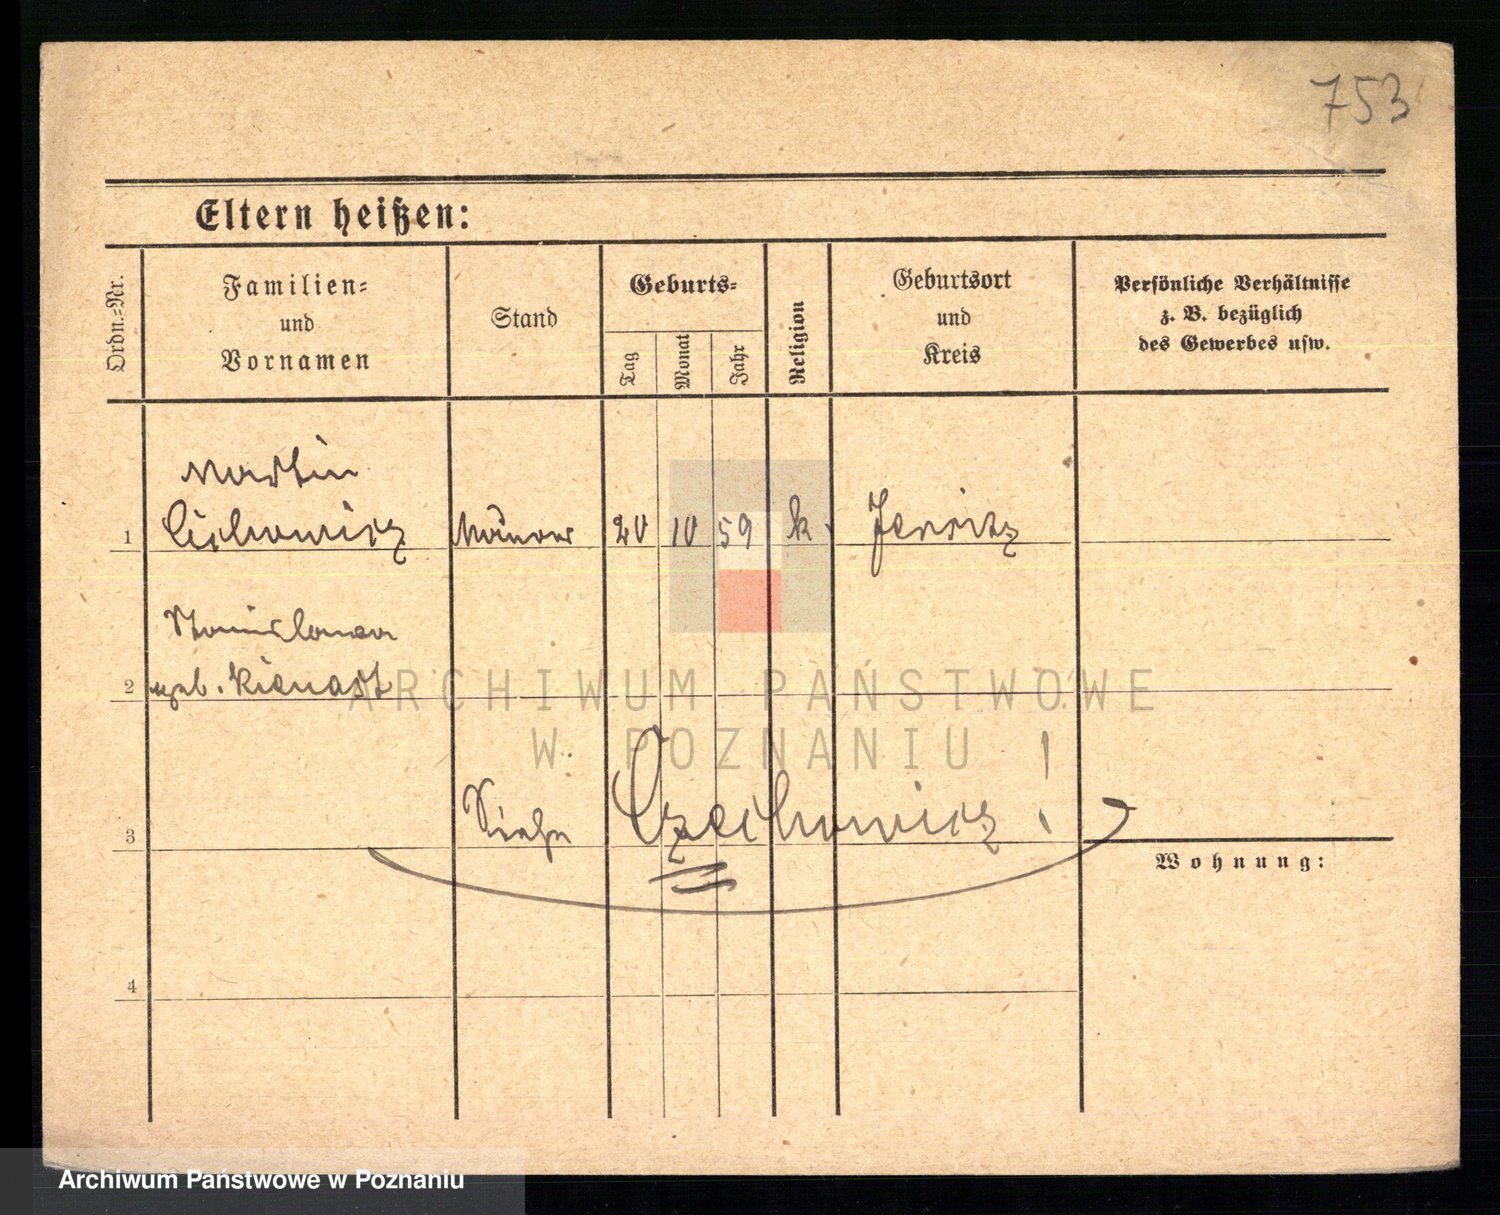 753
Eltern heißen:
Ordn.=Nr.
Familien=
und
Vornamen
Stand
Geburts=
Tag
Monat
Jahr
Religion
Geburtsort
und
Kreis
Persönliche Verhältnisse
z. B. bezüglich
des Gewerbes usw.
Martin
1 Cichowicz Maurer 20 10 59 k. Jersitz
Stanislawa
2 geb. Kienast
3 Siehe Czechowicz!
Wohnung:
4
ARCHIWUM PAŃSTWOWE
W POZNANIU
Archiwum Państwowe w Poznaniu